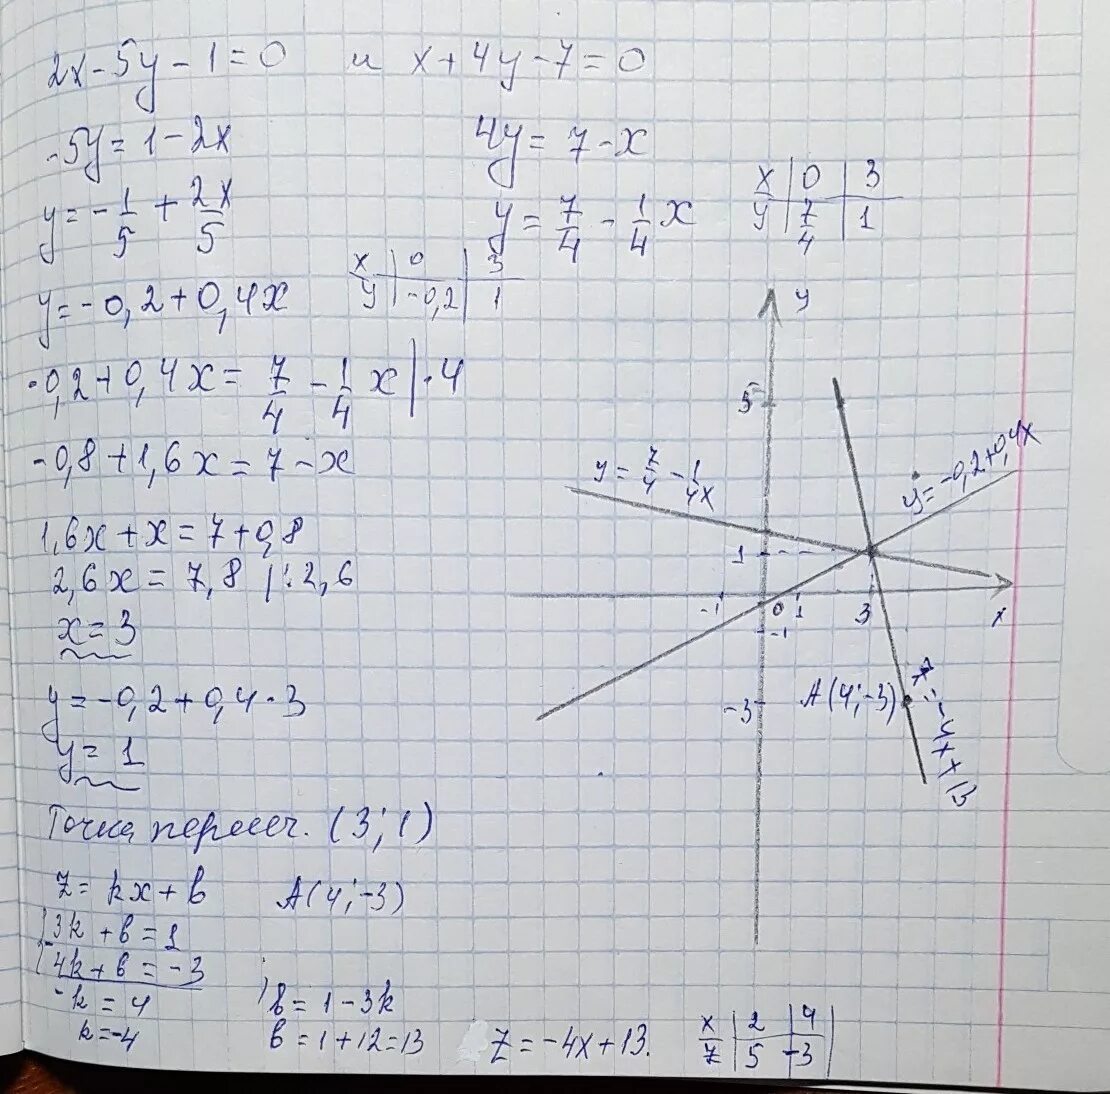 2x - 5y - 1 = 0 и x + 4y - 7 = 0
-5y = 1 - 2x
4y = 7 - x
y = -1/5 + 2x/5
y = 7/4 - 1/4 x
x | 0 | 3
y | 7/4 | 1
y = -0,2 + 0,4x
x | 0 | 3
y | -0,2 | 1
-0,2 + 0,4x = 7/4 - 1/4 x | · 4
-0,8 + 1,6x = 7 - x
1,6x + x = 7 + 0,8
2,6x = 7,8 | : 2,6
x = 3
y = -0,2 + 0,4 · 3
y = 1
Точка пересеч. (3; 1)
z = kx + b A(4; -3)
3k + b = 1
4k + b = -3
-k = 4
k = -4
b = 1 - 3k
b = 1 + 12 = 13
z = -4x + 13.
x | 2 | 4
z | 5 | -3
y
5
y = 7/4 - 1/4 x
y = -0,2 + 0,4x
1
-1 0 1 3 x
-1
-3
A(4; -3)
z = -4x + 13